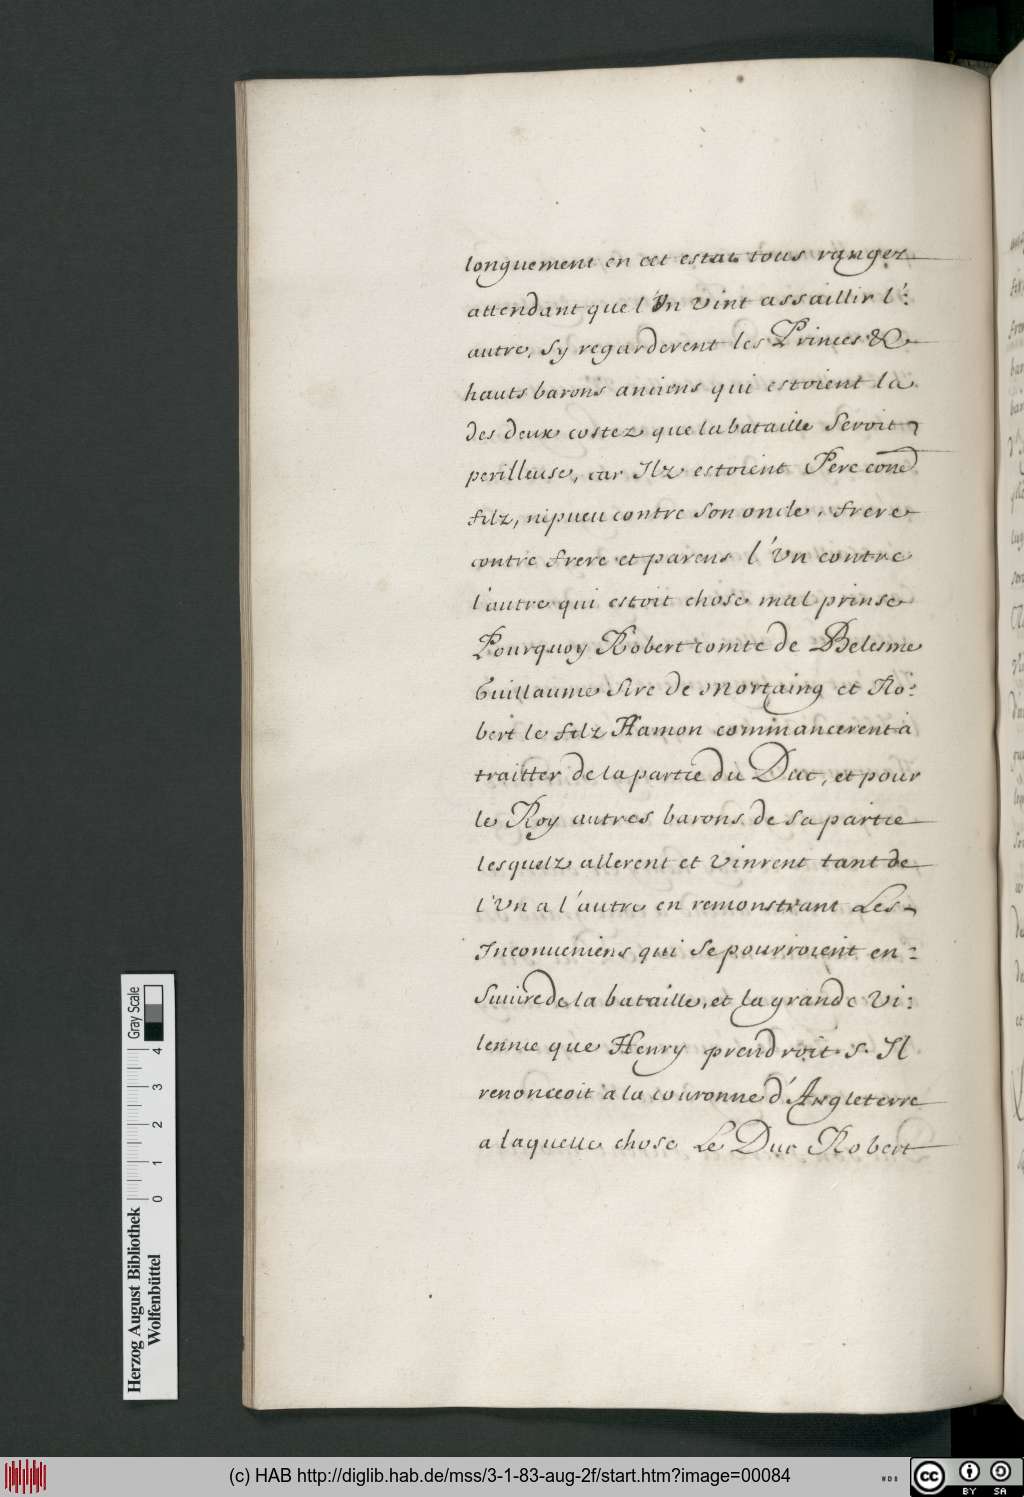 longuement en cet estat tous rangez
attendant que l'Un vint assaillir l':
autre, sy regarderent les Princes &
hauts barons anciens qui estoient la
des deux costez que la bataille seroit
perilleuse, car Ilz estoient Pere con̄e
filz, nipueu contre son oncle, frere
contre frere et parens l'Un contre
l'autre qui estoit chose mal prinse
Pourquoy Robert comte de Belesme
Guillaume sire de Mortaing et Ro:
bert le filz Hamon commancerent a
traitter de la partie du Duc, et pour
le Roy autres barons de sa partie
lesquelz allerent et vinrent tant de
l'Un a l'autre en remonstrant Les
Inconueniens qui se pourroient en:
suiure de la bataille, et la grande vi:
lennie que Henry prendroit s. Il
renonceoit a la couronne d'Angleterre
a laquelle chose Le Duc Robert
Herzog August Bibliothek
Wolfenbüttel
0 1 2 3 4
Gray Scale
(c) HAB http://diglib.hab.de/mss/3-1-83-aug-2f/start.htm?image=00084
WDB
cc BY SA